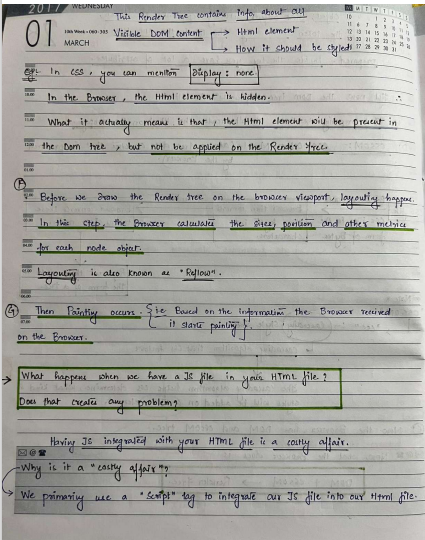 2017 WEDNESDAY
01
10th Week • 060-305
MARCH
This Render Tree contains info. about all
Visible DOM content → Html element
→ How it should be styled
M T W T F S S
10 1 2 3 4 5
11 6 7 8 9 10 11 12
12 13 14 15 16 17 18 19
13 20 21 22 23 24 25 26
13 27 28 29 30 31
In CSS, you can mention display: none
10.00
In the Browser, the Html element is hidden.
11.00
What it actually means is that, the Html element will be present in
12.00
the Dom tree, but not be applied on the Render Tree.
01.00
F
Before we draw the Render tree on the browser viewport, layouting happens.
In this step, the Browser calculates the sizes, position and other metrics
04.00
for each node object.
05.00
Layouting is also known as "Reflow".
06.00
G Then Painting occurs. { i.e Based on the information the Browser received
07.00
it starts painting }.
on the Browser.
→ What happens when we have a JS file in your HTML file?
Does that creates any problem?
Having JS integrated with your HTML file is a costly affair.
Why is it a "costly affair"?
We primarily use a "Script" tag to integrate our JS file into our Html file.